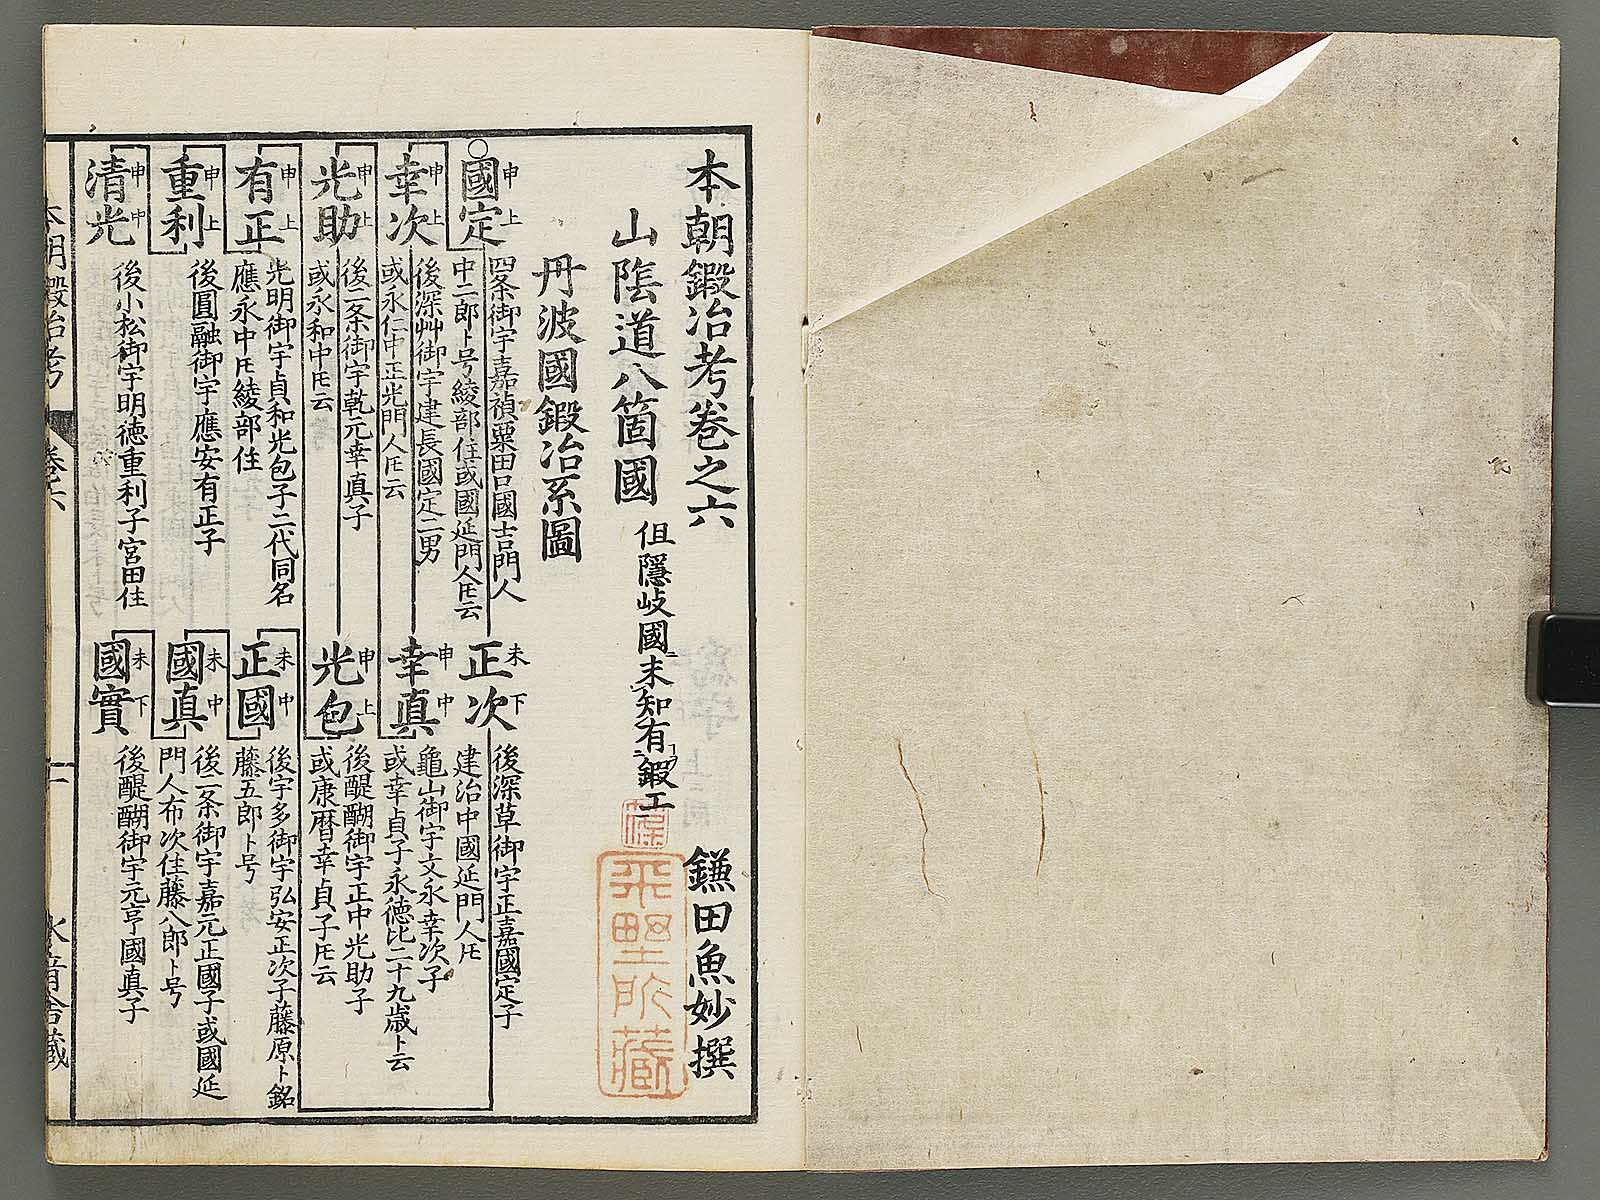 本朝鍛冶考巻之六
鎌田魚妙撰
山陰道八箇國
但隱岐國ニ未知有鍛工
丹波國鍛冶系圖
國定
申上
四条御宇嘉禎粟田口國吉門人
中二郎ト号綾部住或國延門人𪜈云
幸次
申上
後深艸御宇建長國定二男
或永仁中正光門人𪜈云
光助
申上
後二条御宇乾元幸真子
或永和中𪜈云
有正
申上
光明御宇貞和光包子二代同名
應永中𪜈綾部住
重利
申上
後圓融御宇應安有正子
清光
申中
後小松御宇明徳重利子宮田住
正次
未下
後深草御宇正嘉國定子
建治中國延門人𪜈
幸真
申中
龜山御宇文永幸次子
或幸貞子永徳比二十九歳ト云
光包
申上
後醍醐御宇正中光助子
或康暦幸貞子𪜈云
正國
未中
後宇多御宇弘安正次子藤原ト銘
藤五郎ト号
國真
未中
後二条御宇嘉元正國子或國延
門人布次住藤八郎ト号
國實
未下
後醍醐御宇元亨國真子
本朝鍛冶考
巻之六
一
水音舎藏